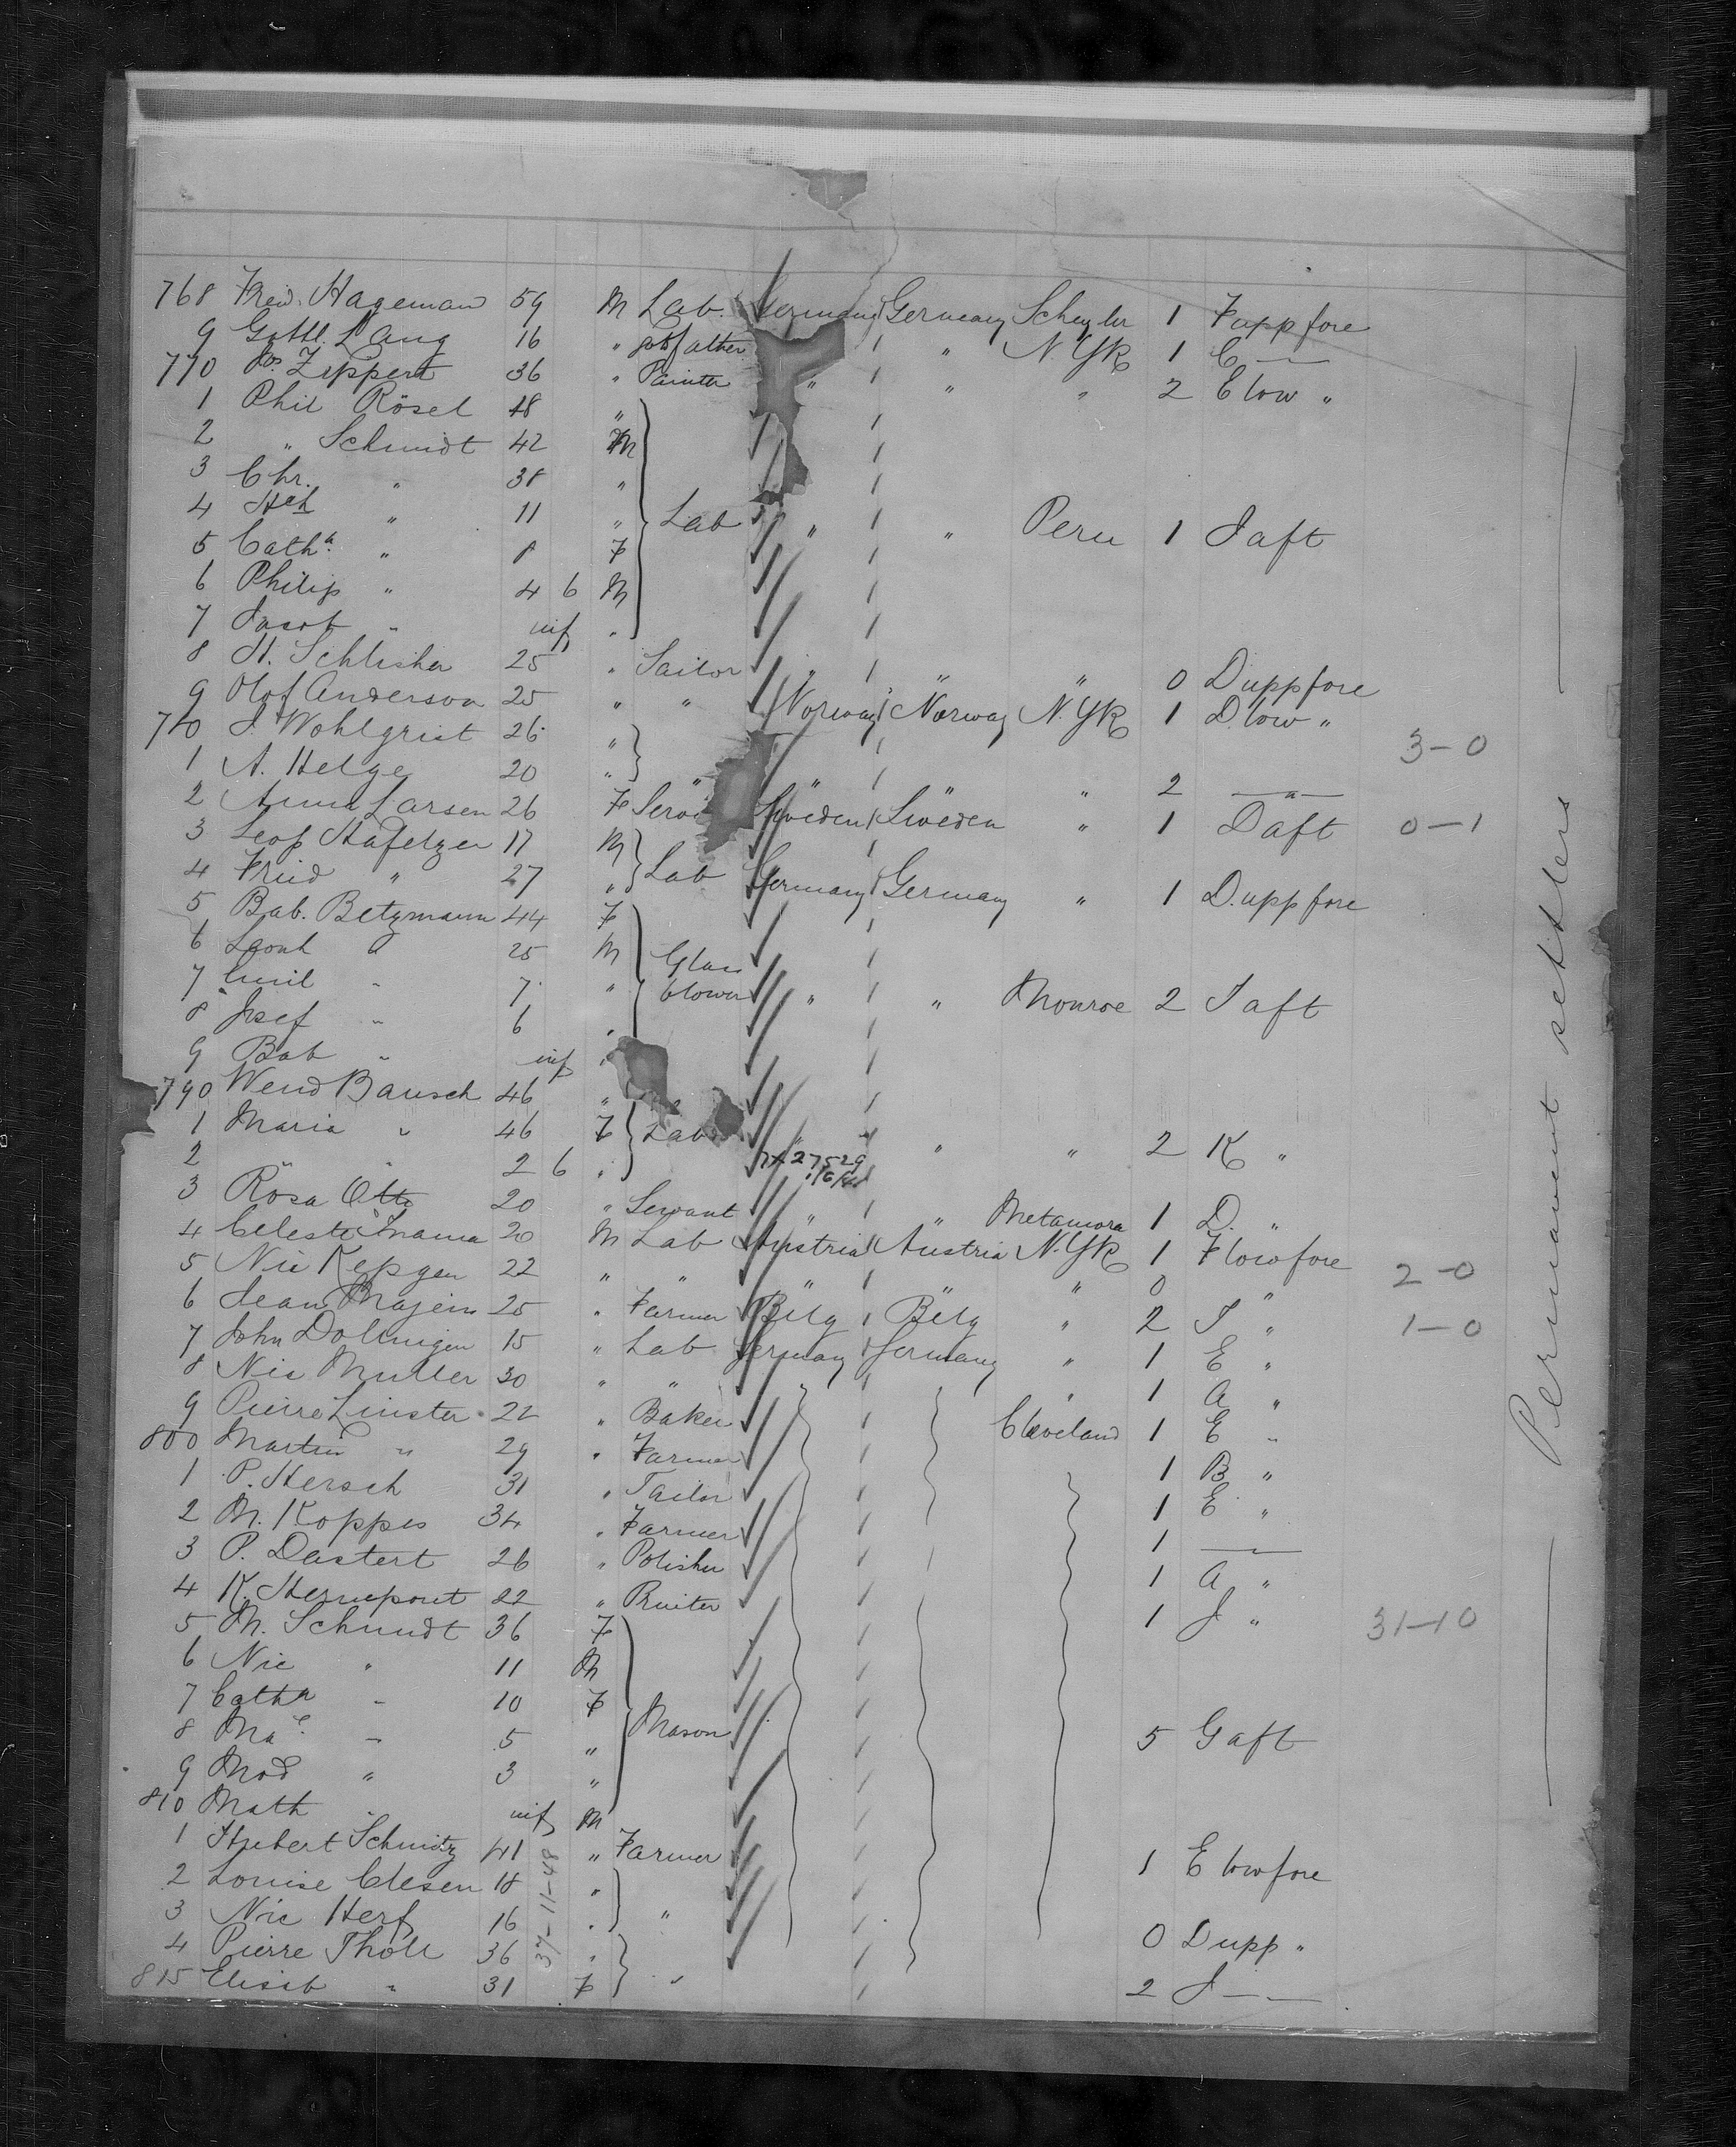 768 Fried. Hageman 59 M Lab. Germany Germany Schuyler 1 F upp fore
9 Gottl. Lang 16 " " N.Yk 1 C —
770 Zippert 36 " Painter " " " 2 E low "
1 Phil Rösel 18 "
2 " Schmidt 42 M
3 Chr. " 38 "
4 Hch " 11 " Lab " " Peru 1 J aft
5 Catha " 8 F
6 Philip " 4 6 M
7 Jacob " inf "
8 H. Schlisker 25 " Sailor " " " 0 D upp fore
9 Olof Anderson 25 " " Norway Norway N.Yk 1 D low "
780 J. Wohlgrist 26 " 3-0
1 A. Helge 20 " " " " 2 — " —
2 Anna Larsen 26 F Sweden Sweden " 1 D aft 0-1
3 Leop Hafelzer 17 M
4 Fried " 27 " Lab Germany Germany " 1 D upp fore
5 Bab. Betzmann 44 F
6 Leonh " 25 M Glass
7 Emil " 7 " blower " " Monroe 2 J aft
8 Josef " 6 "
9 Bab " inf "
790 Wend Bausch 46 "
1 Maria " 46 F Lab " " " 2 K "
2 " " 2 6 " 7x 27529
3 Rosa Otto 20 " Servant " " Metamora 1 D. "
4 Celeste Inama 20 M Lab Austria Austria N.Yk 1 F low fore
5 Nic Kepgen 22 " " " " " 0 " 2-0
6 Jean Majeins 25 " Farmer Belg Belg " 2 J " 1-0
7 John Dolmigen 15 " Lab Germany Germany " 1 E "
8 Nic Muller 30 " " " 1 A "
9 Pierre Linster 22 " Baker Cleveland 1 E "
800 Martin " 29 " Farmer 1 B "
1 P. Hersch 31 " Tailor 1 E "
2 M. Koppes 34 " Farmer 1 —
3 P. Dastert 26 " Polisher 1 A "
4 K. Hernepont 22 " 1 J " 31-10
5 M. Schmidt 36 F
6 Nic " 11 M
7 Catha " 10 F
8 Mae " 5 " Mason 5 G aft
9 Mod " 3 "
810 Math " inf M
1 Hubert Schmitz 41 " Farmer 1 E low fore
2 Louise Clesen 18 "
3 Nic Herf 16 " " 0 D upp "
4 Pierre Tholl 36 "
815 Elisab " 31 F " 2 J — —
37-11-48
Permanent settlers